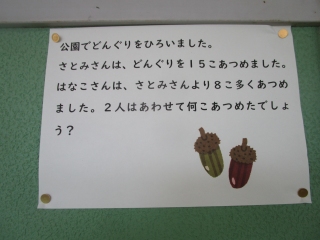 公園でどんぐりをひろいました。
さとみさんは、どんぐりを１５こあつめました。
はなこさんは、さとみさんより８こ多くあつめ
ました。２人はあわせて何こあつめたでしょ
う？